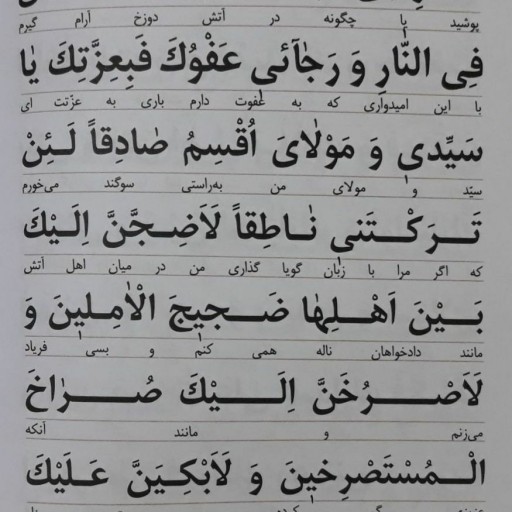 پوشید یا چگونه در آتش دوزخ آرام گیرم
فِی النّٰارِ وَ رَجٰآئی عَفْوُكَ فَبِعِزَّتِكَ یٰا
با این امیدواری که به عفوت دارم باری به عزّتت ای
سَیِّدی وَ مَوْلٰایَ اُقْسِمُ صٰادِقاً لَـئِنْ
سیّد و مولای من به‌راستی سوگند می‌خورم
تَـرَكْـتَنی نٰـاطِقاً لَاَضِـجَّنَّ اِلَـیْكَ
که اگر مرا با زبان گویا گذاری من در میان اهل آتش
بَـیْنَ اَهْـلِـهٰا ضَـجیجَ الْاٰمِـلینَ وَ
مانند دادخواهان ناله همی کنم و بسی فریاد
لَاَصْـرُخَنَّ اِلَـیْكَ صُـرٰاخَ
می‌زنم و مانند آنکه
الْـمُسْتَصْرِخینَ وَ لَاَبْكِـیَنَّ عَـلَیْكَ